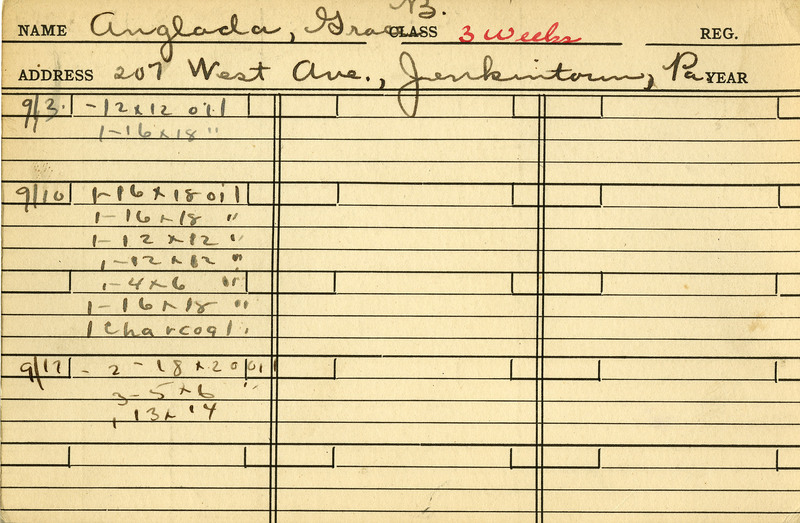 NAME Anglada, Grace B. CLASS 3 Weeks REG.
ADDRESS 207 West Ave., Jenkintown, Pa. YEAR
9/3. -12x12 oil
1-16x18 "
9/10 1-16x18 oil
1-16x18 "
1-12x12 "
1-12x12 "
1-4x6 "
1-16x18 "
1 Charcoal.
9/17 - 2-18x20 oil
3-5x6 "
1 13x14